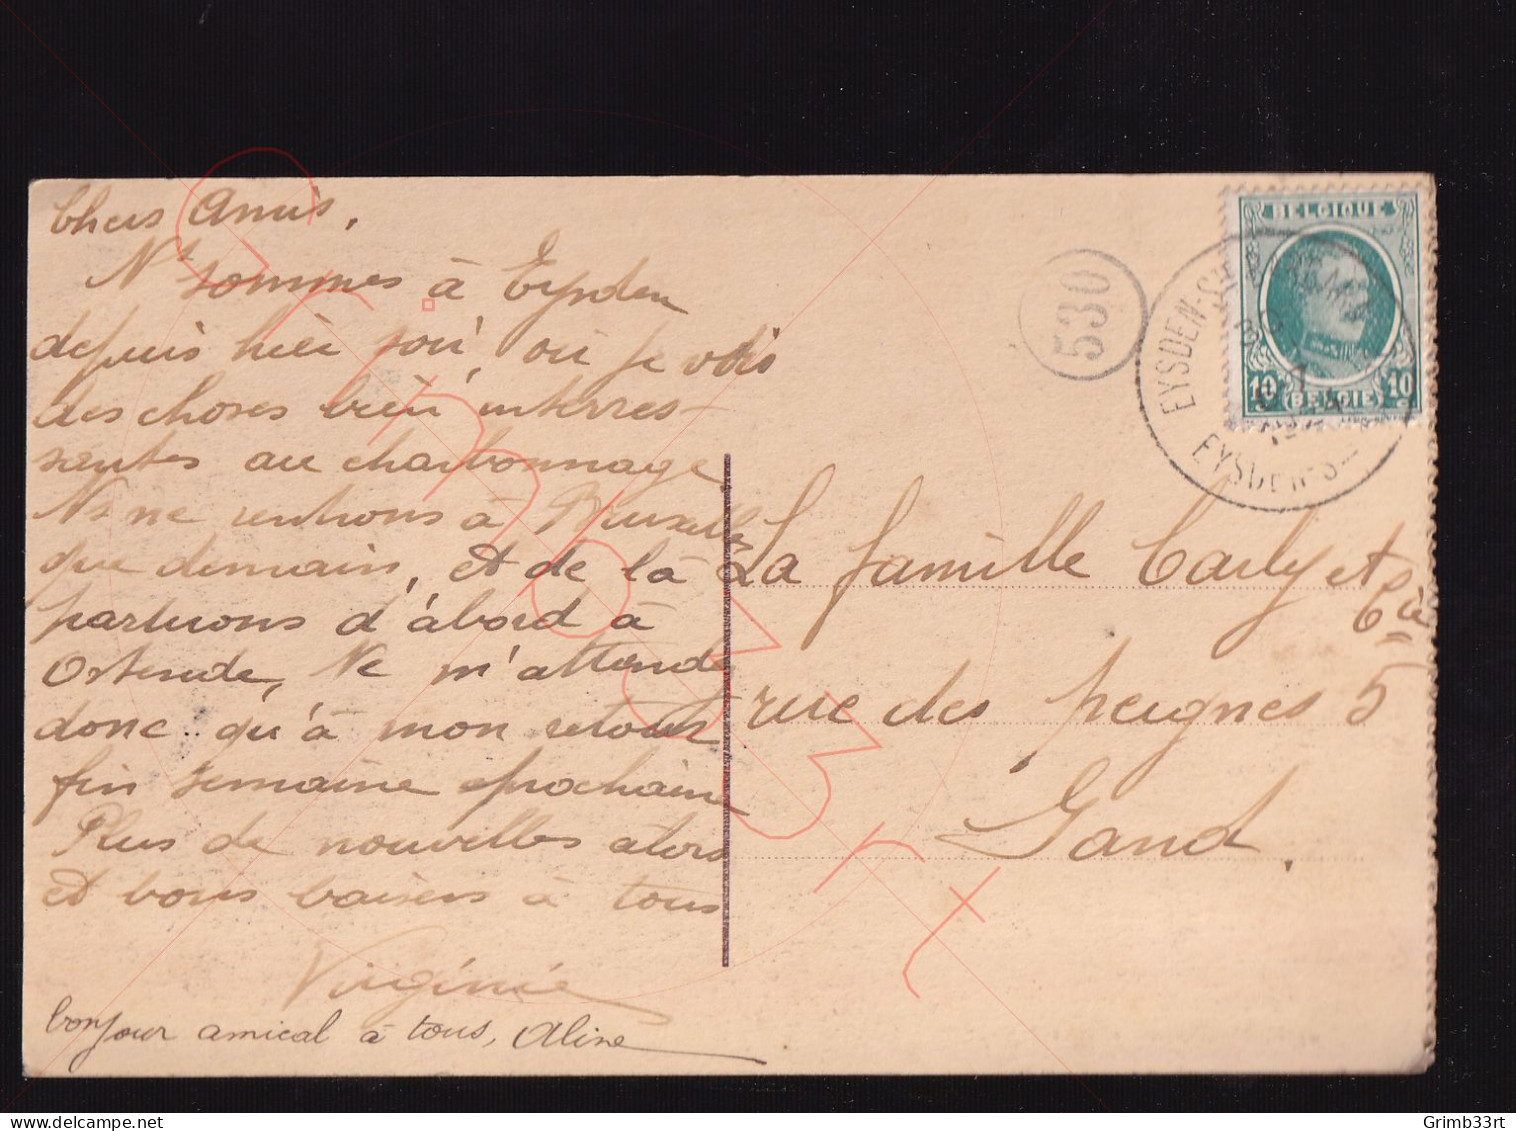 Chers Amis,
Ns sommes à Eysden
depuis hier soir, où je vois
des choses bien interres-
santes au charbonnage
Ns ne rentrons à Bruxelles
que demain, et de là
partirons d'abord à
Ostende, Ne m'attends
donc qu'à mon retour
fin semaine prochaine
Plus de nouvelles alors
et bons baisers à tous
Virginie
bonjour amical à tous, Aline
530
BELGIQUE
10 10
BELGIE
EYSDEN
EYSDEN
La famille Carly et
Cie
rue des peignes 5
Gand.
Grimb33rt
delcampe.net
Grimb33rt